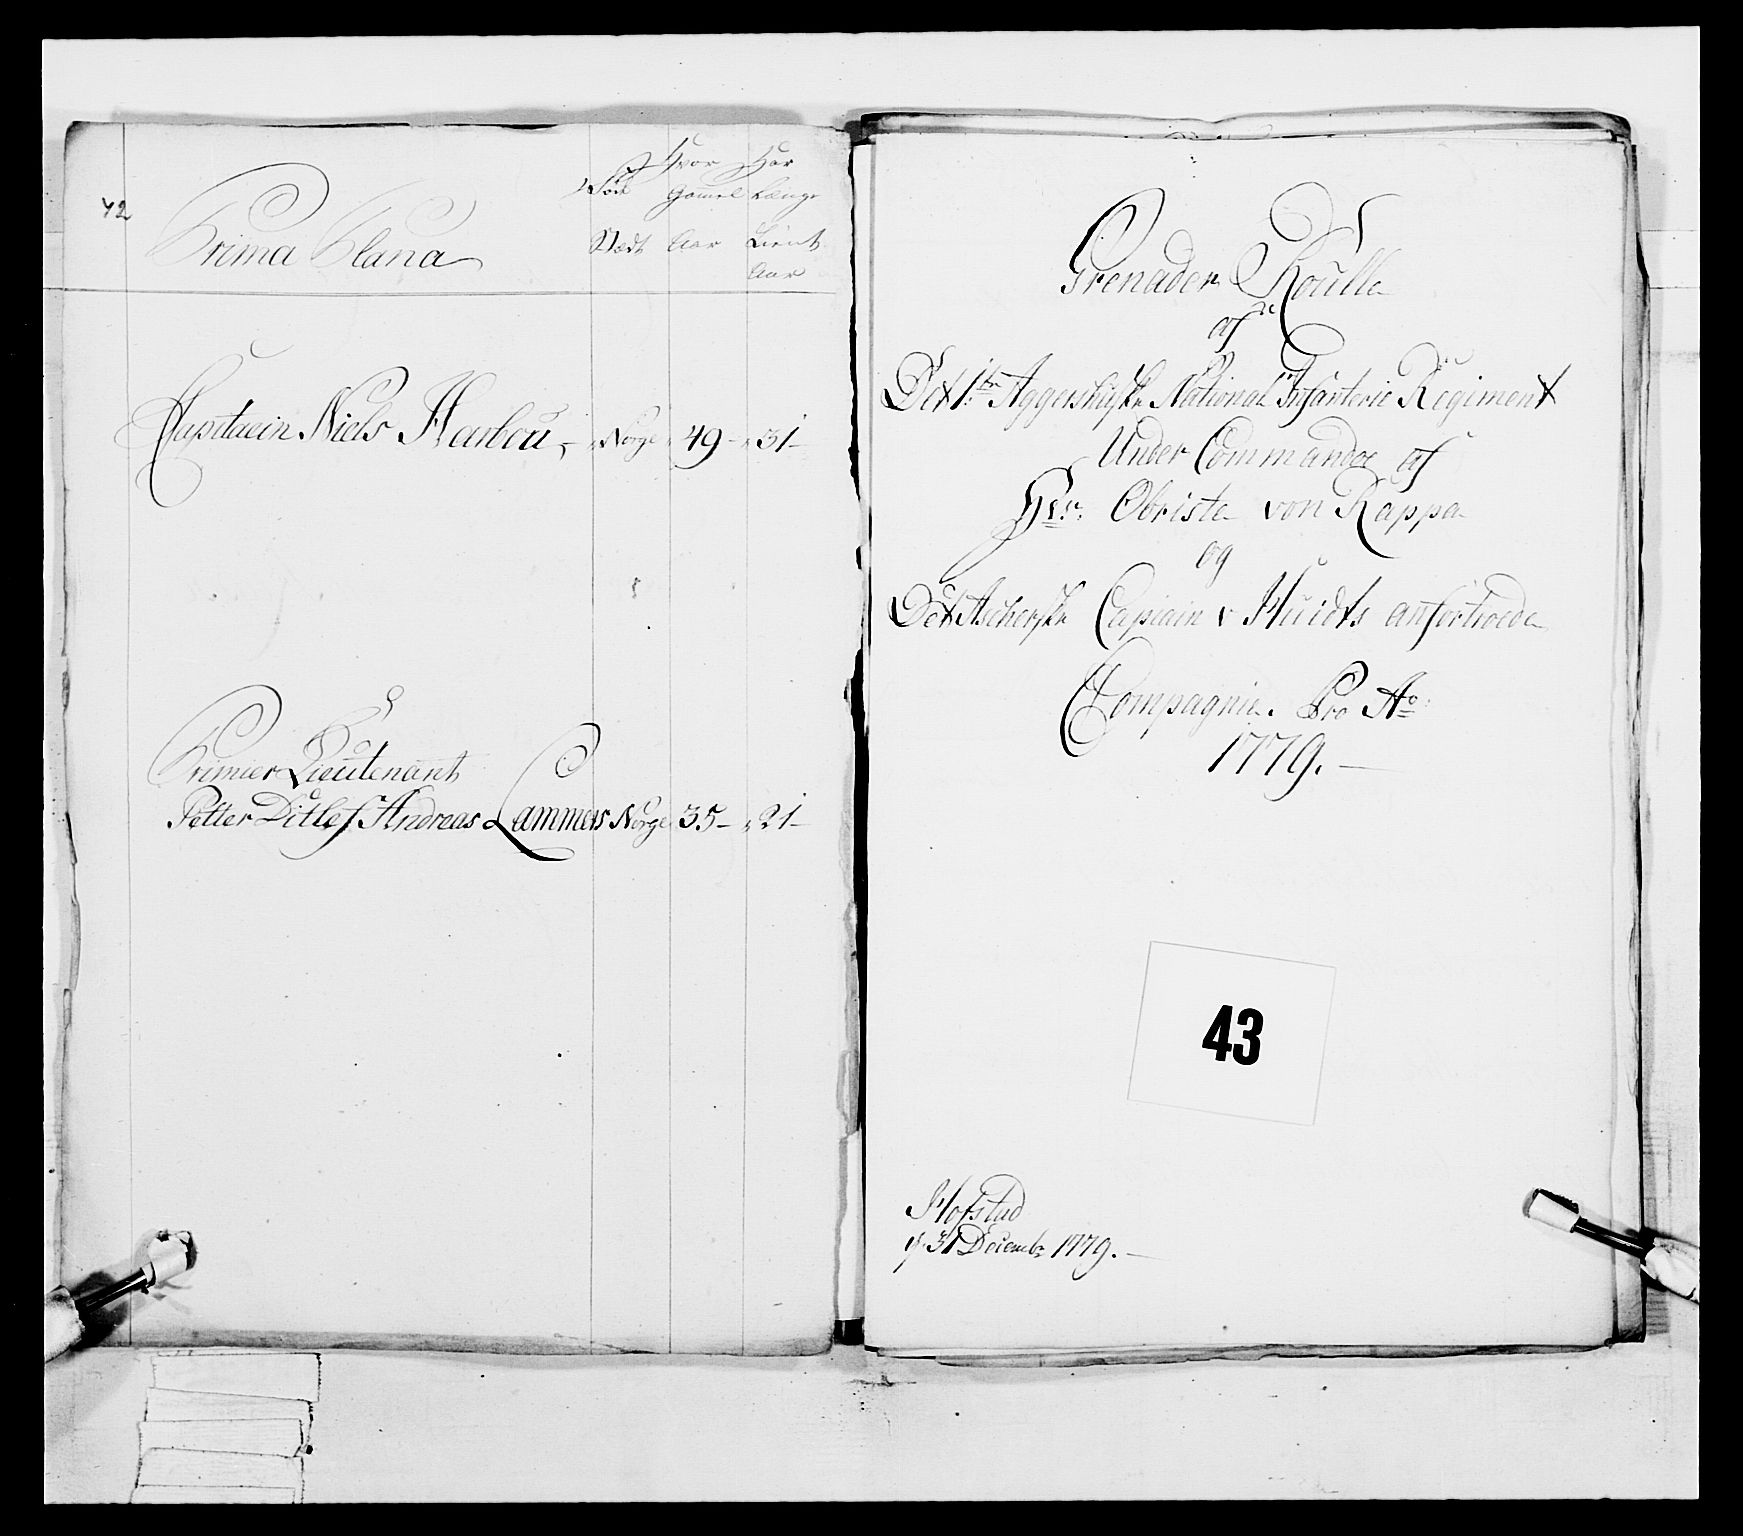 42
Prima Plana
Föde
Stædt
Hvor
Gamel
Aar
Har
Længe
Tient
Aar
Capitaein Niels Harbou, Norge 49 - 31 -
Premier Lieutenant
Petter Ditlef Andreas Lammers Norge 35 - 21 -
Grenadeer Roulle
af
Det 1ste Aggershuske National Infanterie Regiment
Under Commando af
Hr: Obriste von Kappe
og
Det Ascherske Capiain v Huidts anfortroede
Compagnie. Pro Ao:
1779. -
43
Hofstad
d. 31 Decembr 1779. -